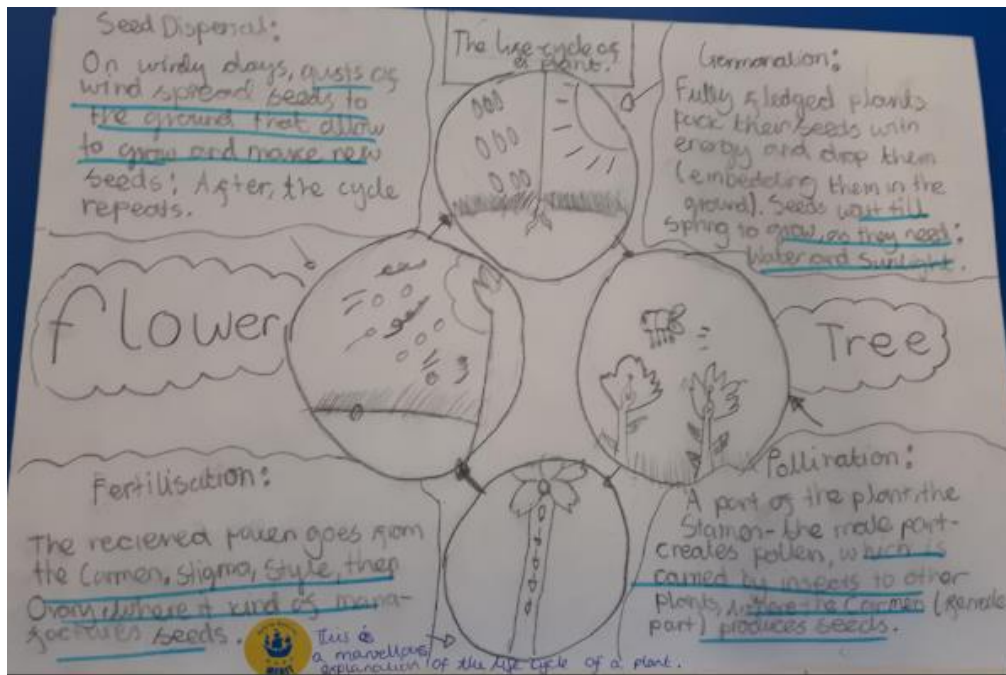 The life cycle of
a plant.
Seed Dispersal:
On windy days, gusts of
wind spread seeds to
the ground that allow
to grow and make new
seeds: After, the cycle
repeats.
Germanation:
Fully fledged plants
pack their seeds with
energy and drop them
(embedding them in the
ground). Seeds wait till
spring to grow, as they need:
Water and Sunlight.
flower
Tree
Fertilisation:
The recieved pollen goes from
the Carmen, Stigma, Style, then
Ovary where it kind of mana-
factures seeds.
Pollination:
A part of the plant, the
Stamen - the male part -
creates pollen, which is
carried by insects to other
plants, where the Carmen (female
part) produces seeds.
This is
a marvellous
explanation of the life cycle of a plant.
MERCY